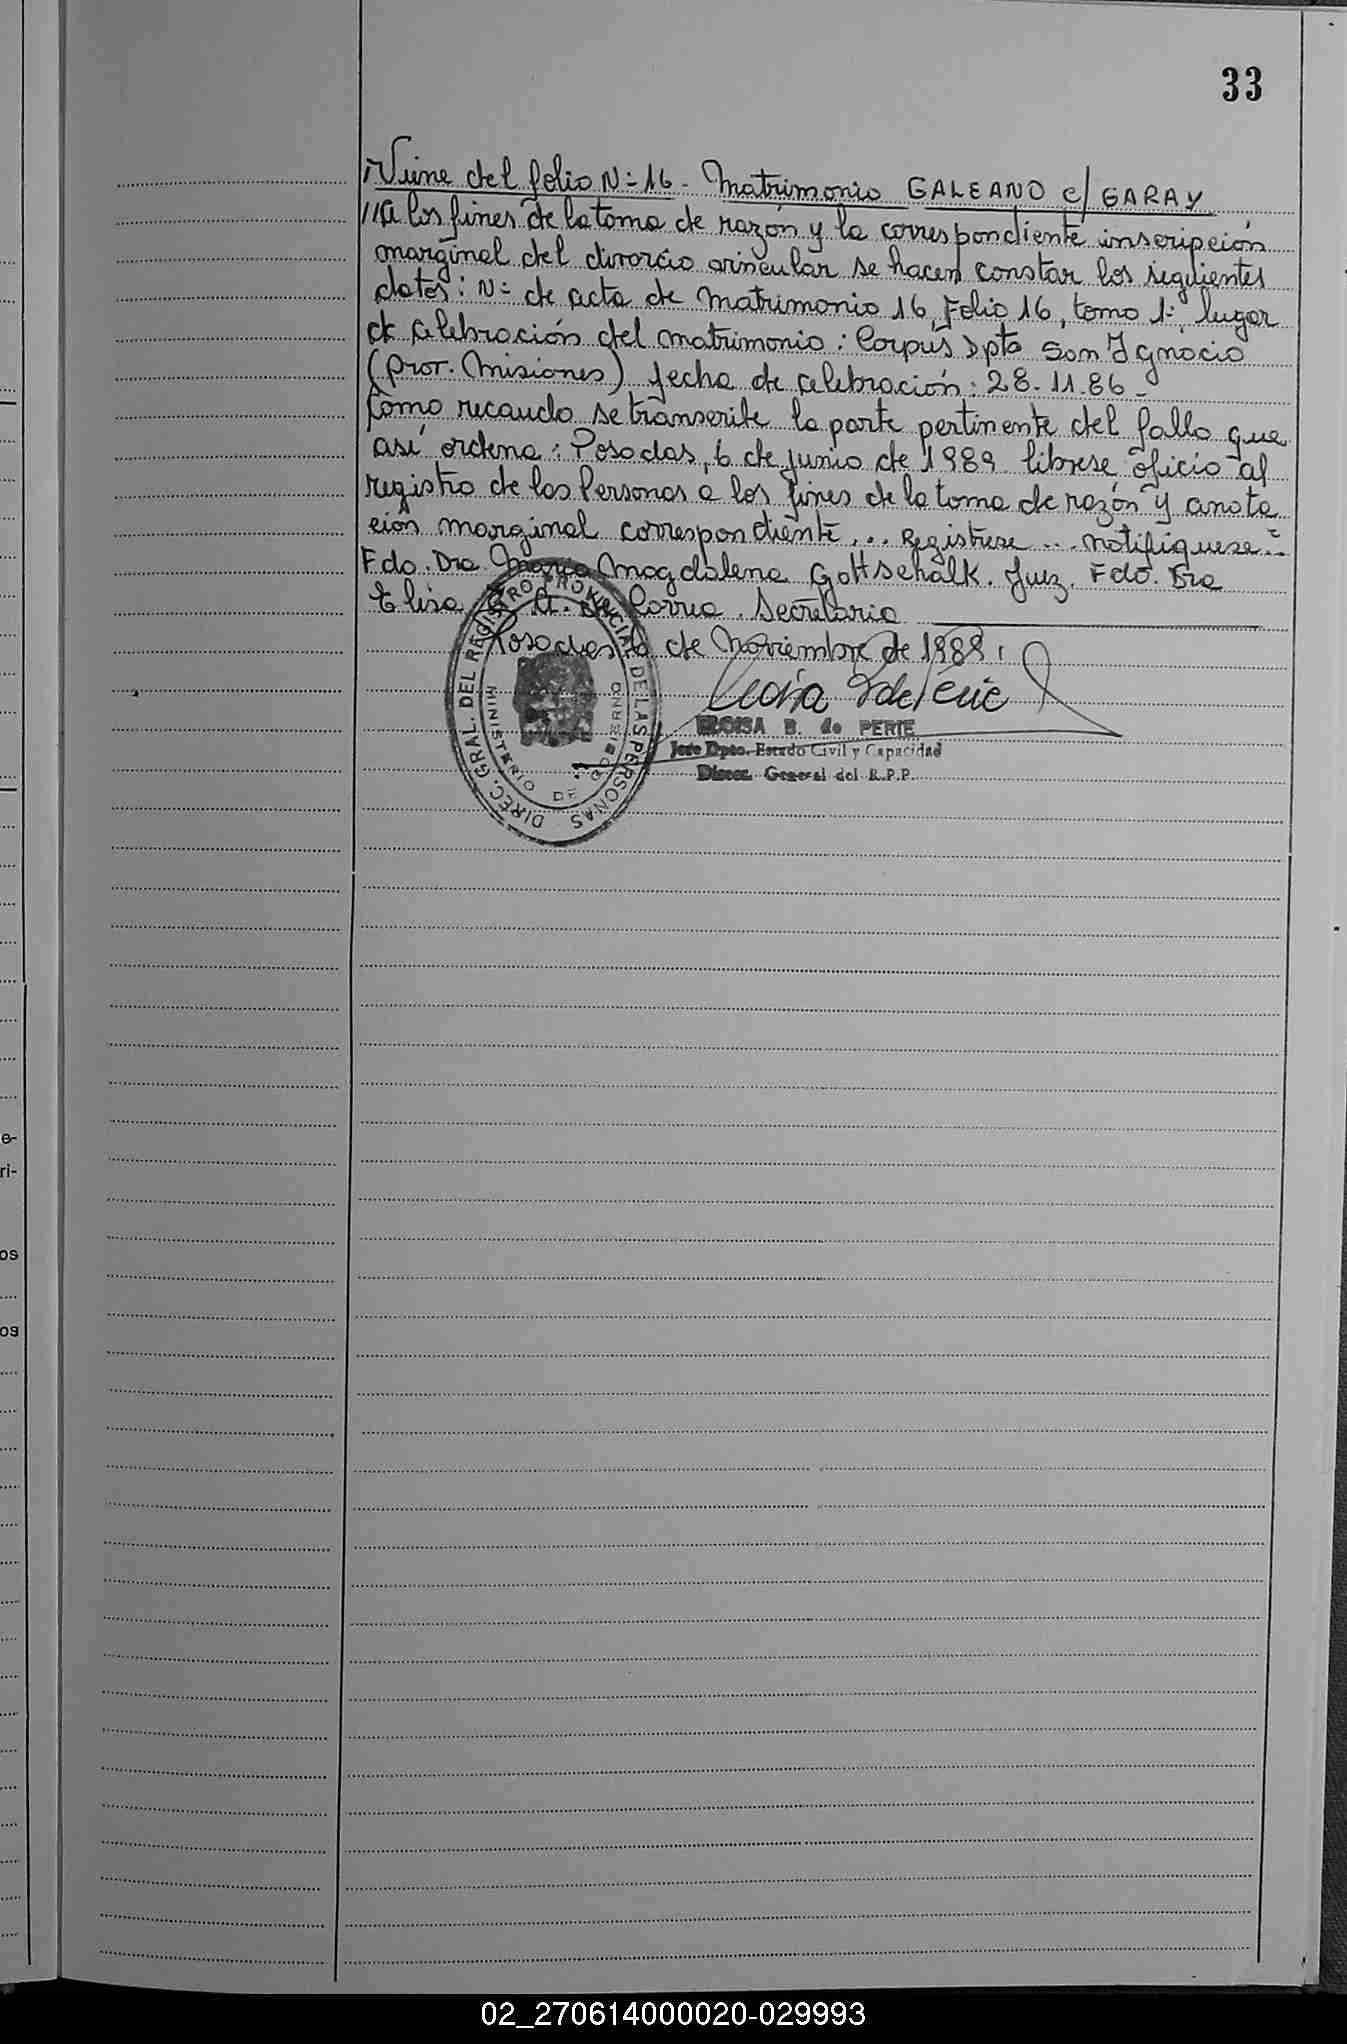 33
Viene del folio Nº 16 - Matrimonio GALEANO c/ GARAY
//A los fines de la toma de razón y la correspondiente inscripción
marginal del divorcio vincular se hacen constar los siguientes
datos: Nº de acta de matrimonio 16, Folio 16, tomo 1º, lugar
de celebración del matrimonio: Corpus Dpto San Ignacio
(Prov. Misiones) fecha de celebración: 28.11.86 -
Como recaudo se transcribe la parte pertinente del fallo que
así ordena: Posadas, 6 de junio de 1989 librese oficio al
registro de las Personas a los fines de la toma de razón y anota
ción marginal correspondiente... Registrese... notifiquese.=
Fdo. Dra. Maria Magdalena Gottschalk. Juez. Fdo. Dra
Elisa A. de Correa. Secretaria
Posadas de Noviembre de 1989.
ELOISA B. de PERIE
Jefe Dpto. Estado Civil y Capacidad
Direcc. General del R.P.P.
DIREC. GRAL. DEL REGISTRO PROVINCIAL DE LAS PERSONAS
MINISTERIO DE GOBIERNO
e-
ri-
os
os
02_270614000020-029993